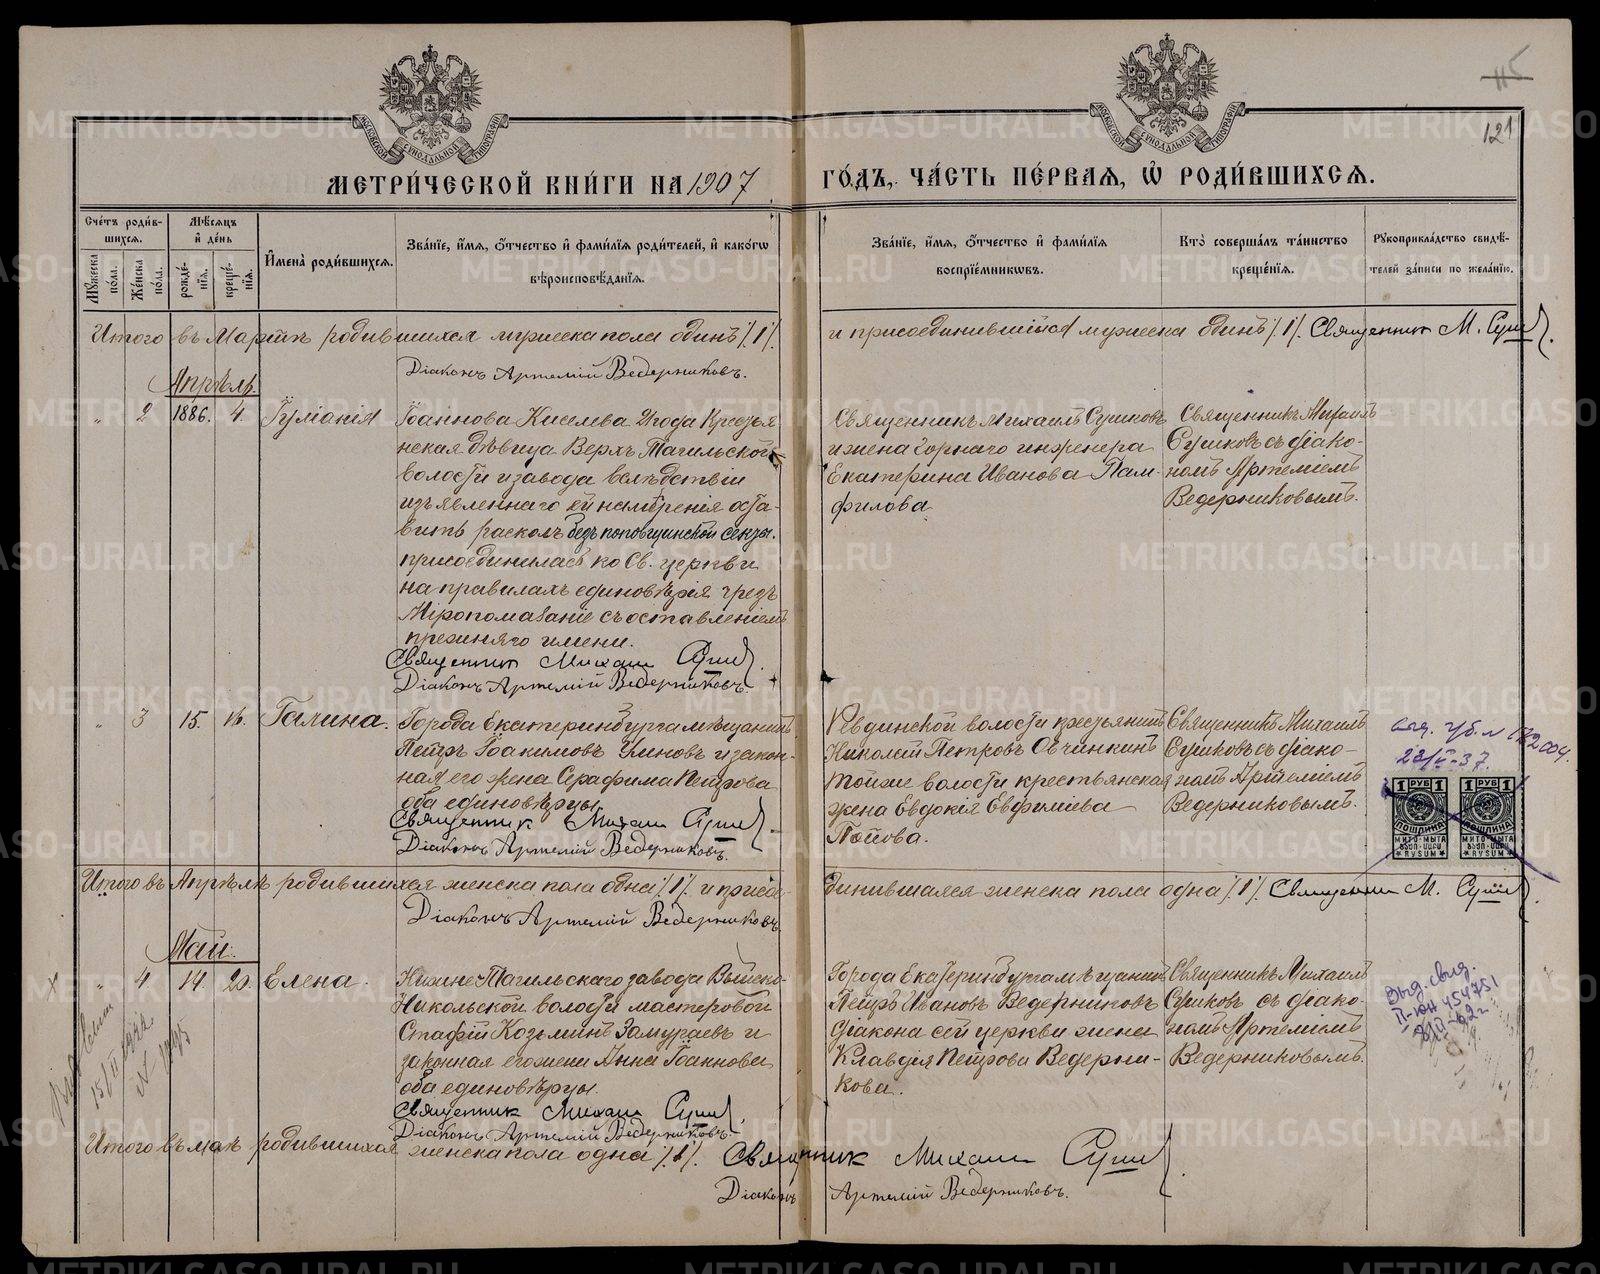 115
121
МЕТРИ́ЧЕСКОЙ КНИ́ГИ НА 1907 ГО́ДЪ, ЧА́СТЬ ПЕ́РВАѦ, Ѡ҆ РОДИ́ВШИХСѦ.
Сче́тъ роди́вшихся.
Мꙋ́жеска по́ла.
Же́нска по́ла.
Мѣ́сяцъ и҆ де́нь
рожде́нїѧ.
креще́нїѧ.
И҆мена̀ роди́вшихсѧ.
Зва́нїе, и҆́мѧ, ѻ҆́тчество и҆ фами́лїѧ роди́телей, и҆ како́гѡ
вѣроисповѣ́данїѧ.
Зва́нїе, и҆́мѧ, ѻ҆́тчество и҆ фами́лїѧ
воспрїе́мниковъ.
Кто̀ соверша́лъ та́инство
креще́нїѧ.
Рꙋкоприкла́дство свидѣ́-
телей за́писи по жела́нїю.
Итого въ Мартѣ родившихся мужеска пола одинъ /1/. и присоединившійся мужеска одинъ /1/. Священник М. Суш
Діаконъ Артемій Ведерниковъ.
Апрѣль.
" 2 1886. 4.
Іоаннова Киселева 21 года Крестья
нская дѣвица Верхъ Тагильской
волости и завода вслѣдствіи
изъявленнаго ей намѣренія оста-
вить расколъ безпоповщинской секты.
присоединилась ко Св. церкви
на правилахъ единовѣрія чрезъ
Мѵропомазаніе съ оставленіемъ
прежняго имени.
Священник Михаил Суш
Діаконъ Артемій Ведерниковъ.
Священникъ Михаилъ Сушковъ
и жена горнаго инженера
Екатерина Иванова Пам-
филова
Священникъ Михаилъ
Сушковъ съ діако-
номъ Артеміемъ
Ведерниковымъ.
" 3 15. 16. Галина.
Города Екатеринбурга мѣщанинъ
Петръ Іоакимовъ и закон-
ная его жена Серафима Петрова
оба единовѣрцы
Священник Михаил Суш
Діаконъ Артемій Ведерниковъ.
Ревдинской волости крестьянинъ
Николай Петровъ Овчинкинъ
тойже волости крестьянская
жена Евдокія Евфиміева
Попова.
Священникъ Михаилъ
Сушковъ съ діако-
номъ Артеміемъ
Ведерниковымъ.
37.
1 РУБ 1
1 РУБ 1
ПОШЛИНА
ПОШЛИНА
МИТО-МЫТА
МИТО-МЫТА
RYSUM
RYSUM
Итого въ Апрѣлѣ родившихся женска пола одна /1/. и присое-
динившаяся женска пола одна /1/. Священник М. Суш
Діаконъ Артемій Ведерниковъ.
Май.
" 4 14. 20. Елена.
Нижне-Тагильскаго завода Выйско-
Никольской волости мастеровой
Стафій Козьминъ Замураевъ и
законная его жена Анна Іоаннова
оба единовѣрцы.
Священник Михаил Суш
Діаконъ Артемій Ведерниковъ.
Города Екатеринбурга мѣщанинъ
Петръ Ивановъ Ведерниковъ
діакона сей церкви жена
Клавдія Петрова Ведерни-
кова.
Священникъ Михаилъ
Сушковъ съ діако-
номъ Артеміемъ
Ведерниковымъ.
Выд. свид.
II-ЮН 454751
Итого въ маѣ родившихся женска пола одна /1/. Священник Михаил Суш
Діаконъ Артемій Ведерниковъ.
METRIKI.GASO-URAL.RU